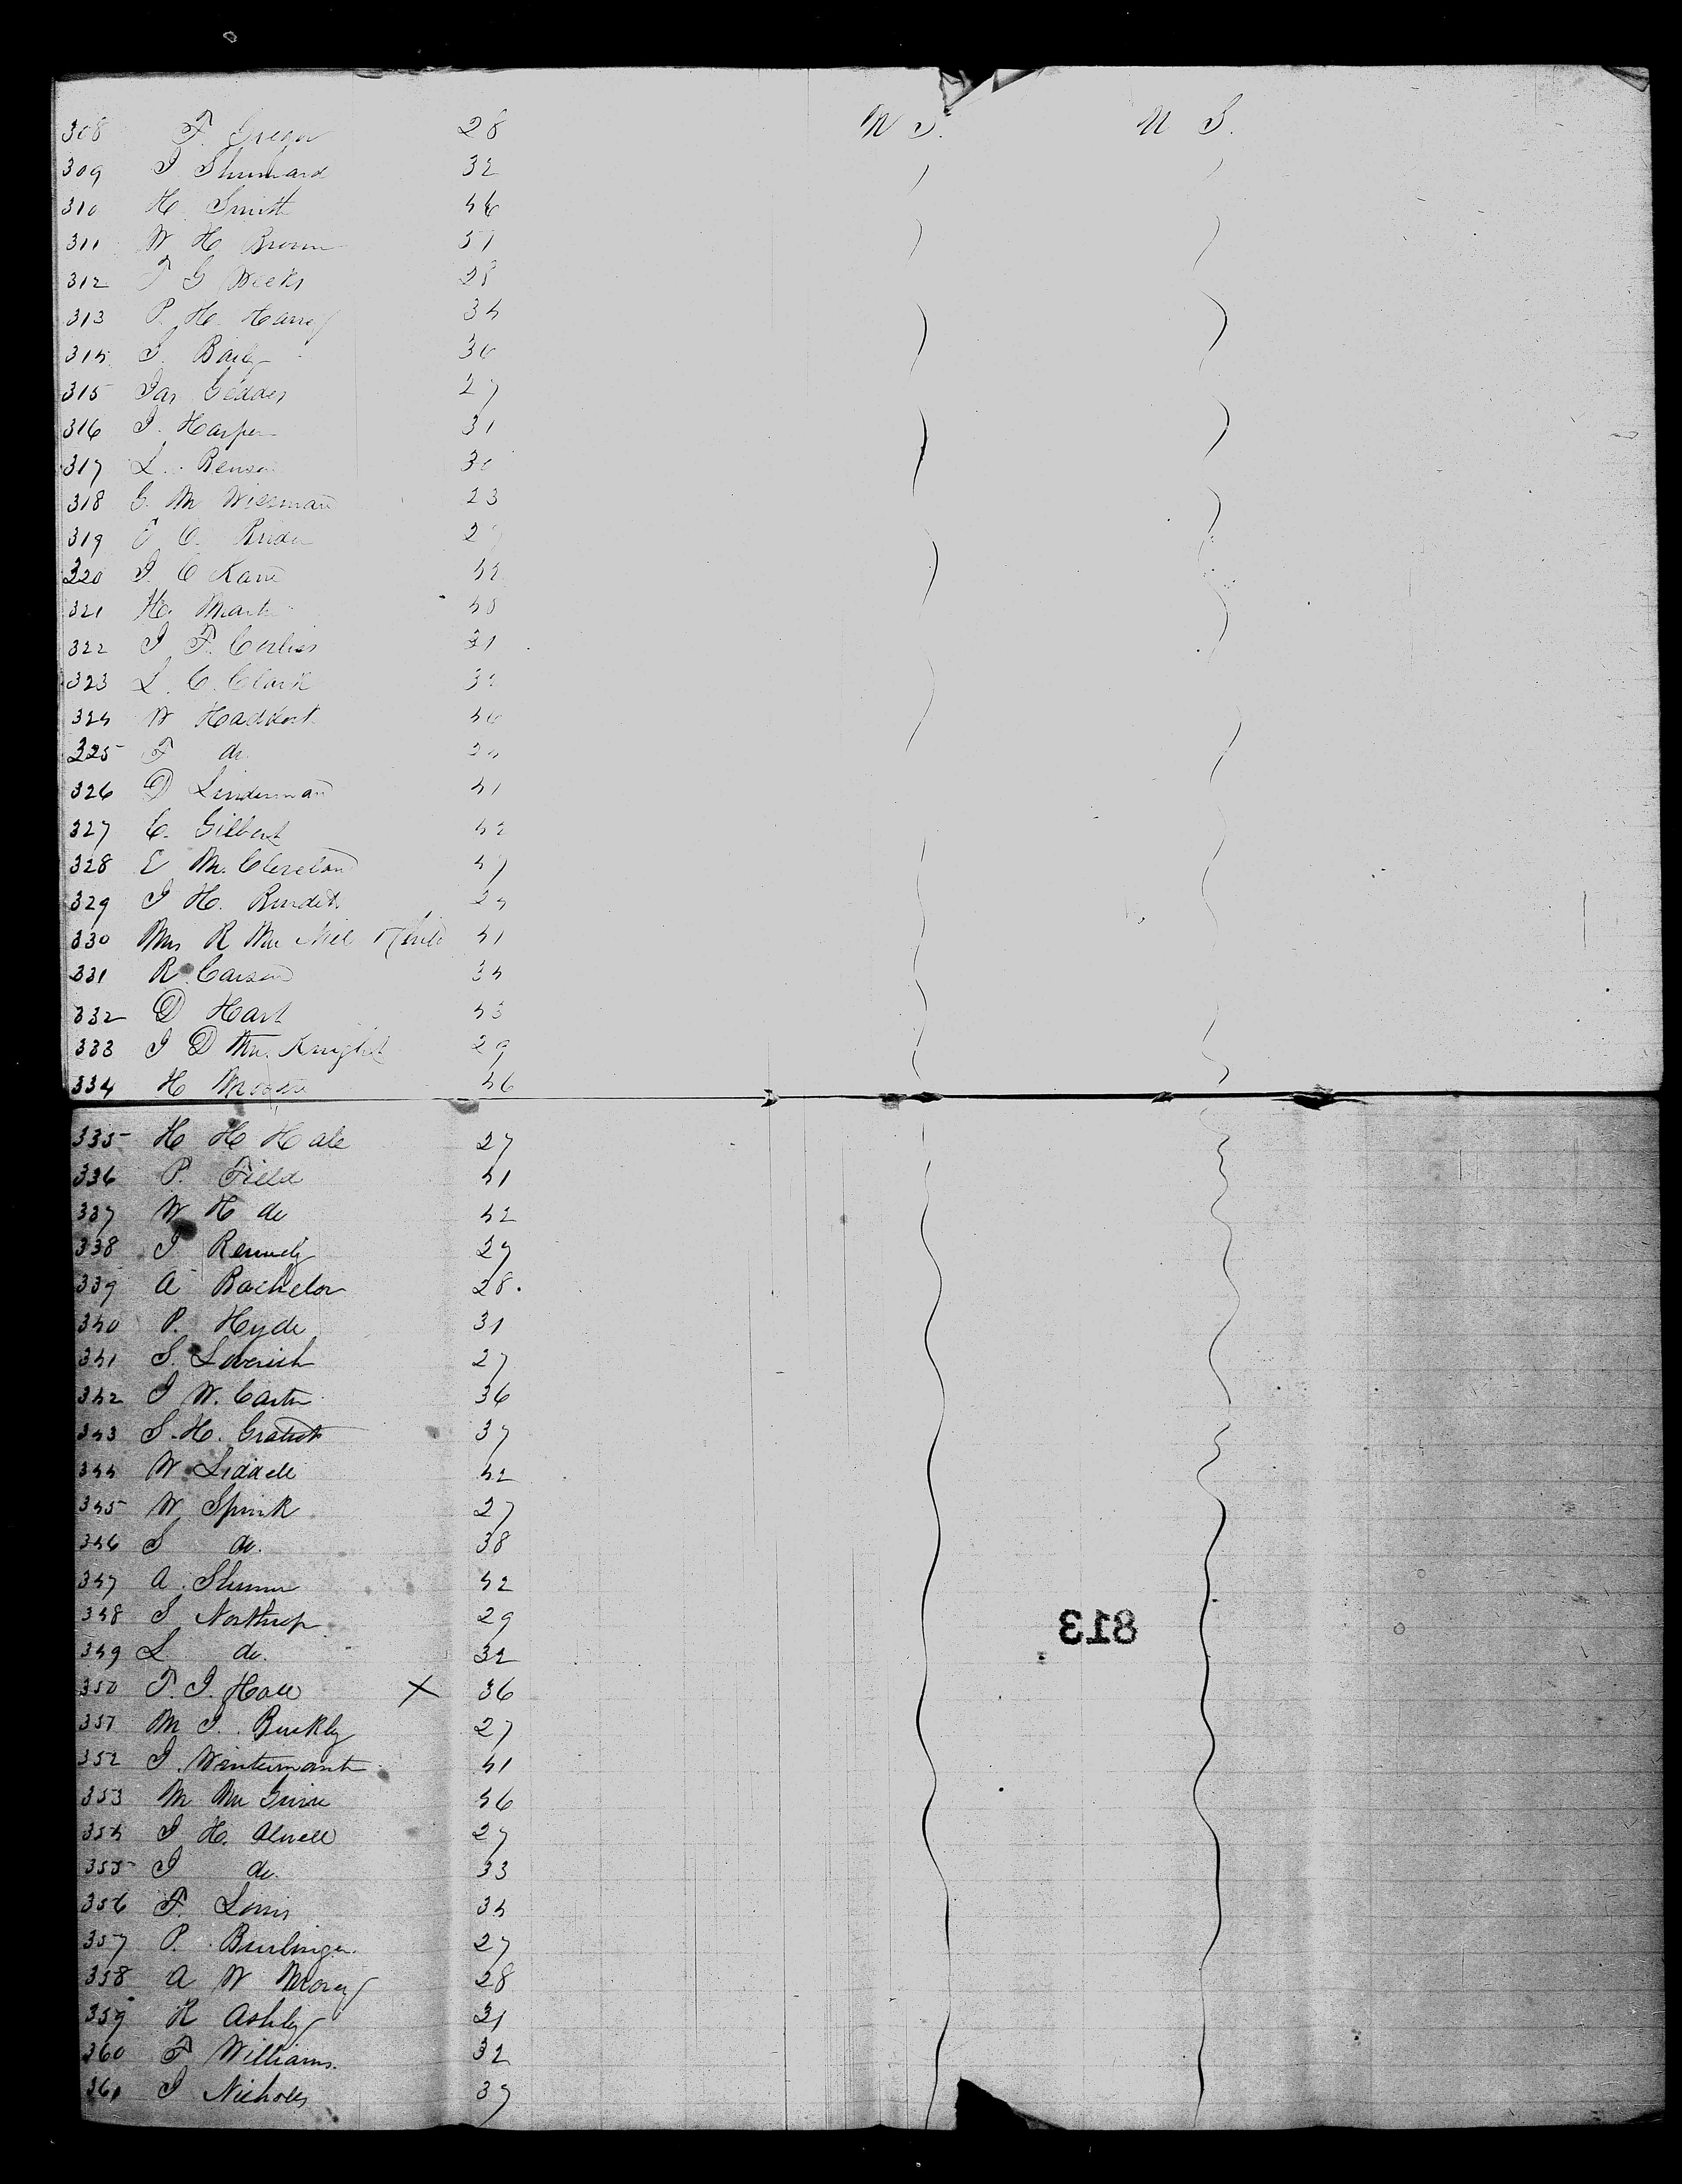 308 F. Gregor 28 U S. U S.
309 J Shumard 32
310 H. Smith 46
311 W H Brown 37
312 T G Weeks 28
313 P. H. Harvey 34
314 S. Baily 36
315 Jas Geddes 27
316 J. Harper 31
317 L. Benson
318 G. M Wiseman 23
319 E C. Rider
320 J. C Kane 42
321 H. Martin 40
322 J F. Corlies 31
323 L. C. Clark 32
324 W Haddort 46
325 F do 24
326 D Linderman 41
327 C. Gilbert 42
328 E M. Cleveland 47
329 J H. Burdett 24
330 Mrs R Mc Neil & Child 41
331 R. Carson 34
332 D Hart 43
333 J D Mc. Knight 29
334 H Moore 46
335 H H Hale 27
336 P. Field 41
337 W H do 42
338 J Kennedy 27
339 A Bachelor 28.
340 P. Hyde 31
341 S. Leverich 27
342 J W. Carter 36
343 S. H. Gratiot 37
344 W. Liddell 42
345 W. Spink 27
346 S do. 38
347 A. Skinner 42
348 S Northrop 29
349 L do. 32
350 T. J. Hall X 36
351 M J. Buckly 27
352 J. Wintermant 41
353 M Mc Guire 46
354 J H. Alwell 27
355 J do. 33
356 F. Lewis 34
357 P. Burlinger 27
358 A W Morey 28
359 R Ashley 31
360 F Williams. 32
361 J Nicholls 37
813